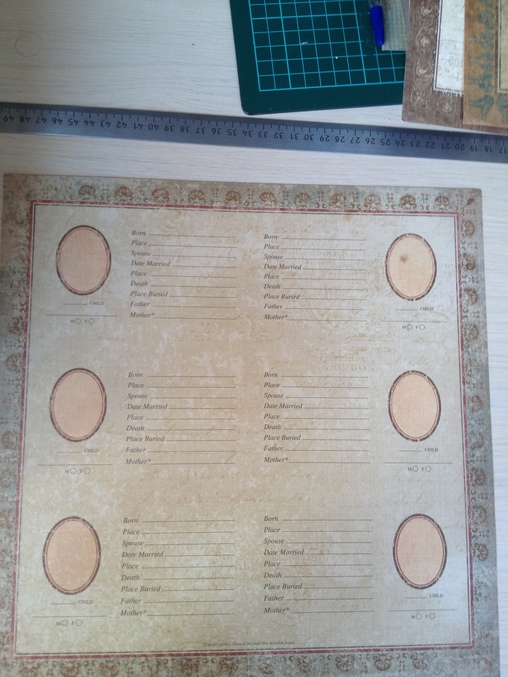 49 48 47 46 45 44 43 42 41 40 39 38 37 36 35 34 33 32 31 30 29 28 27 26 25 24 23 22 21 20 19 18
Born
Place
Spouse
Date Married
Place
Death
Place Buried
Father
Mother*
CHILD
M F
Born
Place
Spouse
Date Married
Place
Death
Place Buried
Father
Mother*
CHILD
M F
Born
Place
Spouse
Date Married
Place
Death
Place Buried
Father
Mother*
CHILD
M F
Born
Place
Spouse
Date Married
Place
Death
Place Buried
Father
Mother*
CHILD
M F
Born
Place
Spouse
Date Married
Place
Death
Place Buried
Father
Mother*
CHILD
M F
Born
Place
Spouse
Date Married
Place
Death
Place Buried
Father
Mother*
CHILD
M F